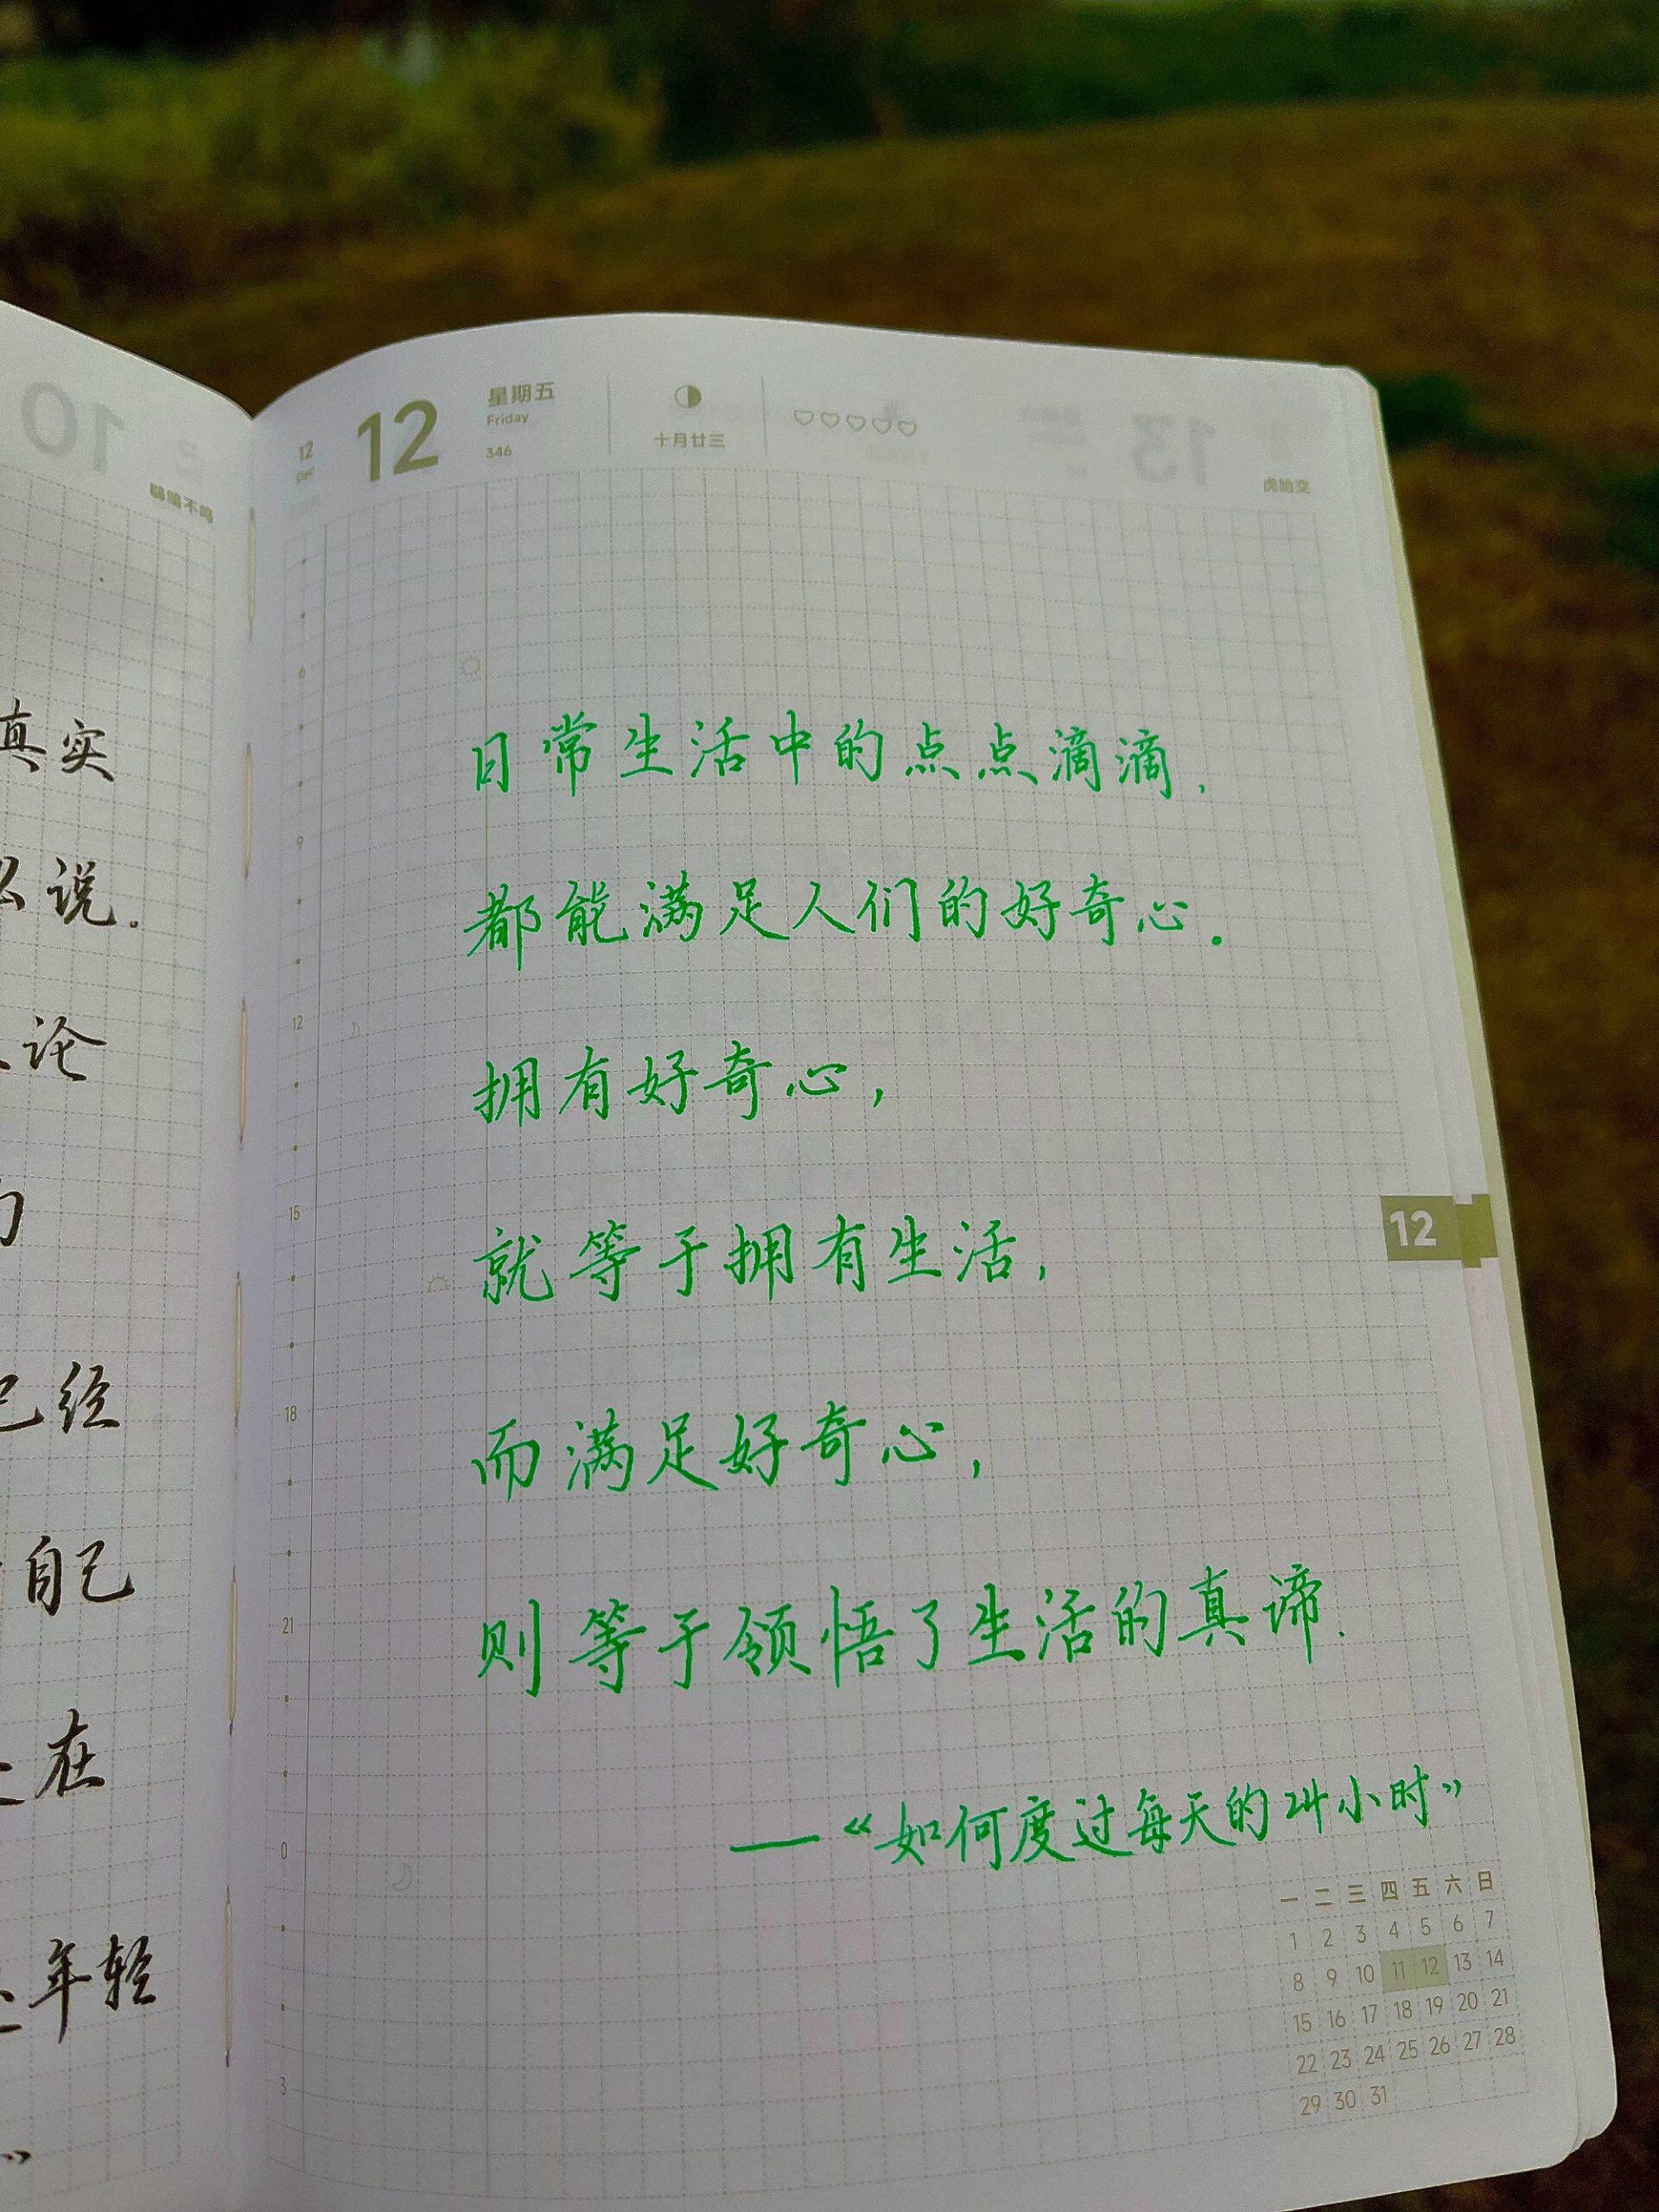 真实
说.
论
己经
自己
在
年轻
”
12
Dec
12
星期五
Friday
346
十月廿三
虎始交
6
9
12
15
18
21
0
3
日常生活中的点点滴滴,
都能满足人们的好奇心.
拥有好奇心,
就等于拥有生活,
而满足好奇心,
则等于领悟了生活的真谛.
——“如何度过每天的24小时”
12
一 二 三 四 五 六 日
1 2 3 4 5 6 7
8 9 10 11 12 13 14
15 16 17 18 19 20 21
22 23 24 25 26 27 28
29 30 31